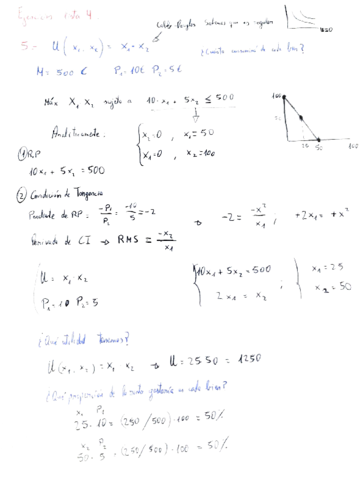 Ejercicios lista 4
Cobb-Douglas
5.- U(x₁, x₂) = x₁·x₂
¿Cuánto consumirá de cada bien?
M = 500 € P₁=10€ P₂=5€
Máx X₁ X₂ sujeto a 10·x₁ + 5x₂ ≤ 500
100
25 50 100
x₂=0, x₁=50
x₁=0, x₂=100
① RP
10x₁ + 5x₂ = 500
② Condición de Tangencia
Pendiente de RP: -P₁/P₂ = -10/5 = -2 → -2 = -x₂/x₁ ; +2x₁ = +x₂
Derivada de CI → RMS = -x₂/x₁
U = x₁ x₂
P₁=10 P₂=5
10x₁ + 5x₂ = 500 ; x₁=25
2x₁ = x₂ x₂=50
¿Qué utilidad tenemos?
U(x₁, x₂) = x₁ x₂ → U = 25·50 = 1250
¿Qué proporción de la renta gastaría en cada bien?
x₁ P₁
25·10 = (250/500)·100 = 50%
x₂ P₂
50·5 = (250/500)·100 = 50%